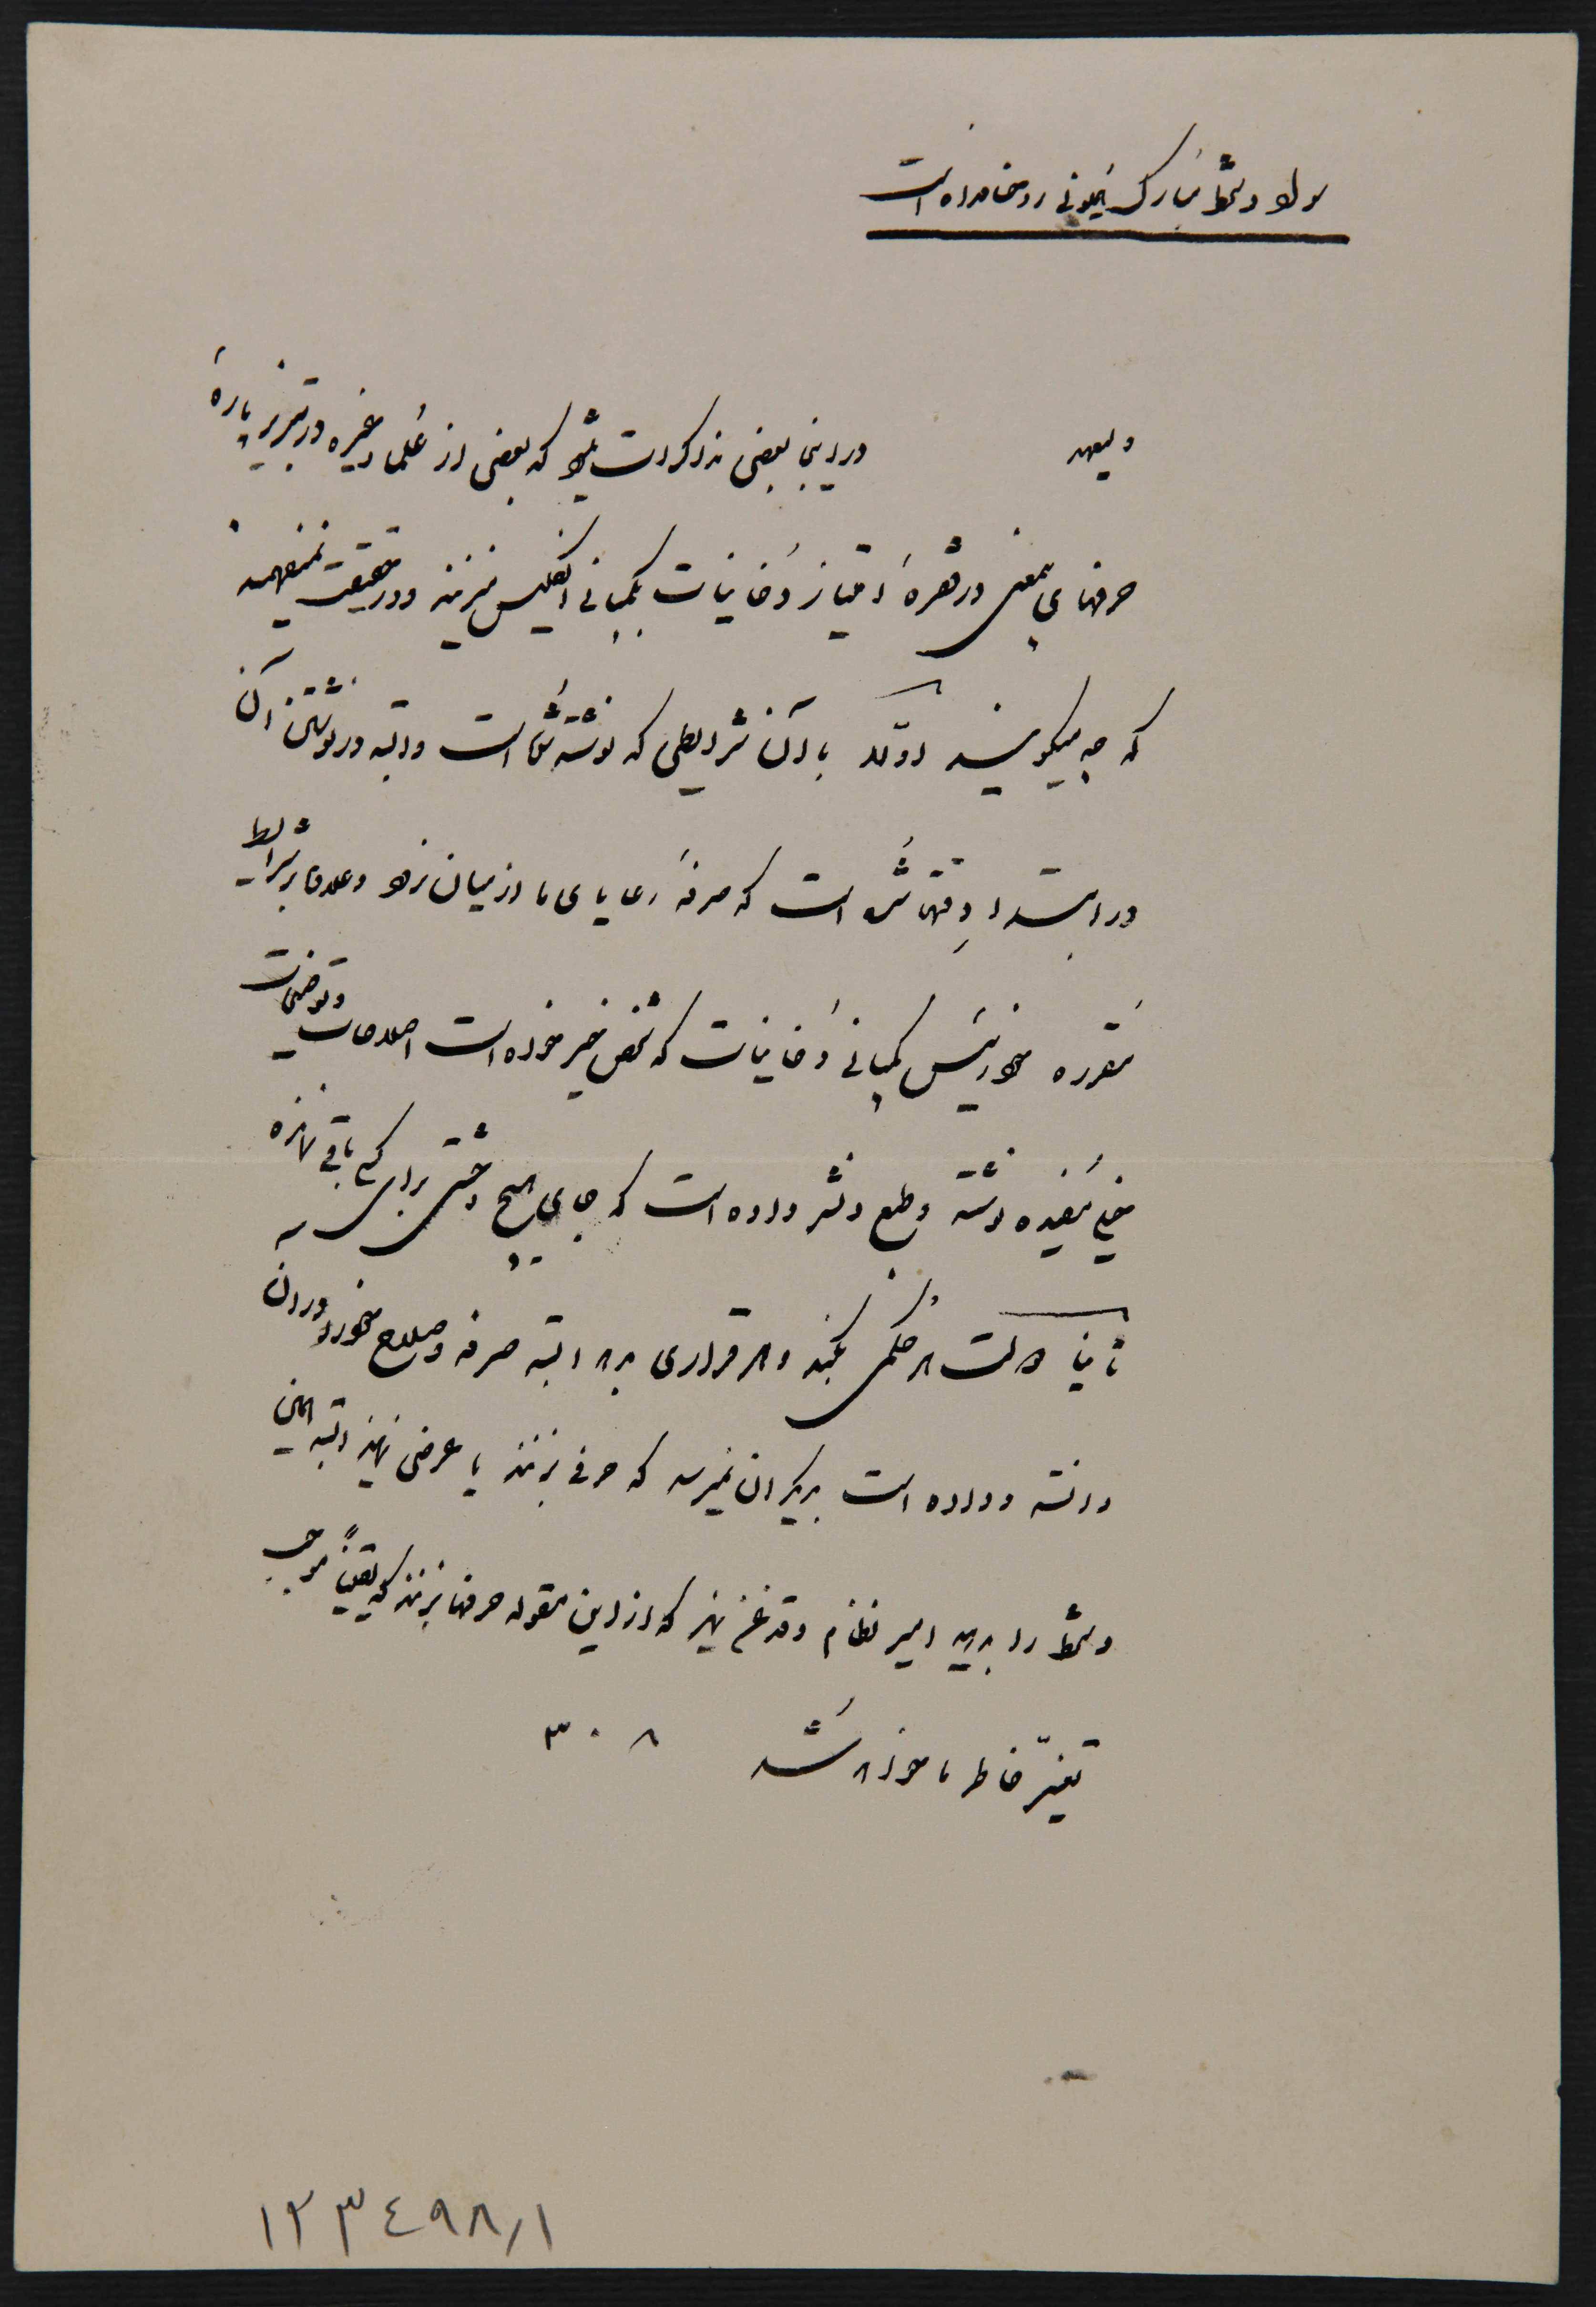 سواد دستخط مبارک همیونی روحنافداه است
ولیعهد در اینجا بعضی مذاکرات میشود که بعضی از علما و غیره در تبریز پارهٔ
حرفهای بیمعنی در فقرهٔ امتیاز دخانیات بکمپانی انگلیس میزنند و در حقیقت نمیفهمند
که چه میگویند اولا با آن شرایطی که نوشته شده است و البته در نوشتن آن
در ابتدا دقتها شده است که صرفه رعایای ما از میان نرود و علاوه بر شرایط
مقرره خود رئیس کمپانی دخانیات که شخص خیرخواه است اصلاحات و توضیحات
خیلی مفیده نوشته و طبع و نشر داده است که جای هیچ وحشتی برای کسی باقی نمانده
ثانیا دولت هر حکمی بکند و هر قراری بدهد البته صرفه و صلاح خود را در آن
دانسته و داده است بدیگران نمیرسد که حرفی بزنند یا عرضی نمایند البته همین
دستخط را بدهید امیر نظام و قدغن نماید که از این مقوله حرفها نزنند که یقیناً موجب
تغیّر خاطر ما خواهد شد ۳۰۸
۱۲۳٤۹۸٫۱